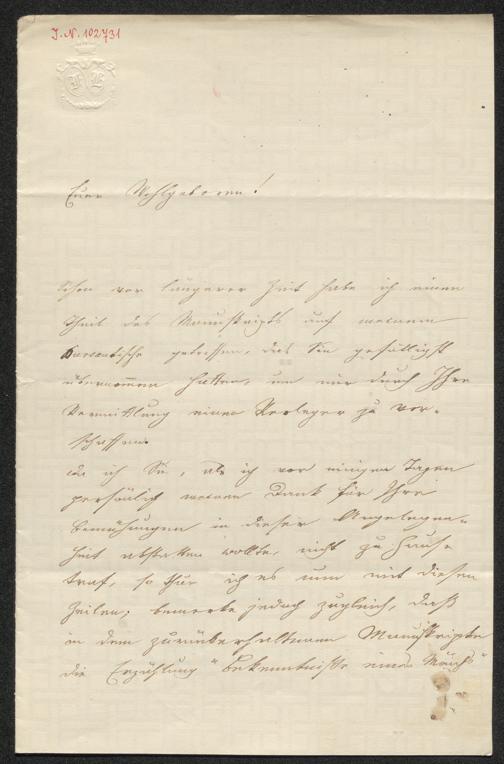 J. N. 102731
Euer Wohlgeboren!
Schon vor längerer Zeit habe ich einen
Theil des Manuskripts auf meinem
Bureautische getroffen, das Sie gefälligst
übernommen hatten, um mir durch Ihre
Vermittlung einen Verleger zu ver-
schaffen.
Da ich Sie, als ich vor einigen Tagen
persönlich meinen Dank für Ihre
Bemühungen in dieser Angelegen-
heit abstatten wollte, nicht zu Hause
traf, so thue ich es nun mit diesen
Zeilen; bemerke jedoch zugleich, daß
in dem zurückerhaltenen Manuskripte
die Erzählung "Bekenntnisse eines Mönchs"